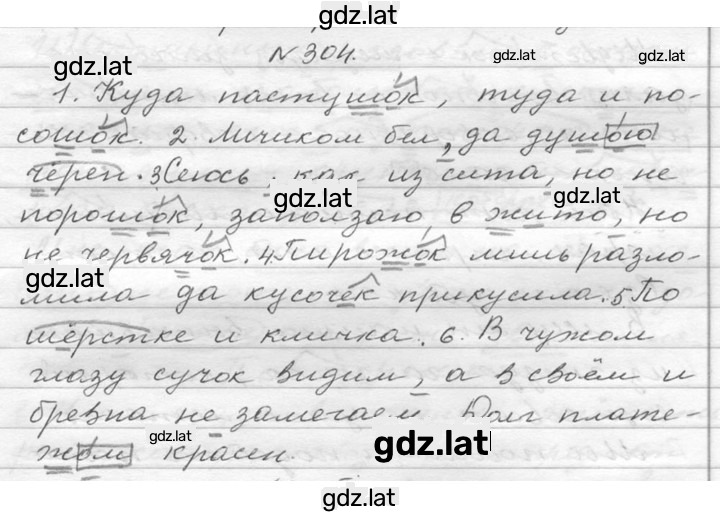 gdz.lat
N 304.
gdz.lat
gdz.lat
gdz.lat
1. Куда пастушок, туда и по-
сошок. 2. Личиком бел, да душою
черен. 3 Сеюсь, как из сита, но не
gdz.lat
gdz.lat
порошок, заползаю в жито, но
не червячок. 4 Пирожок лишь разло-
gdz.lat
мила да кусочек прикусила. 5 По
шёрстке и кличка. 6. В чужом
глазу сучок видим, а в своём и
бревна не замечаем. Долг плате-
жом красен.
gdz.lat
gdz.lat
gdz.lat